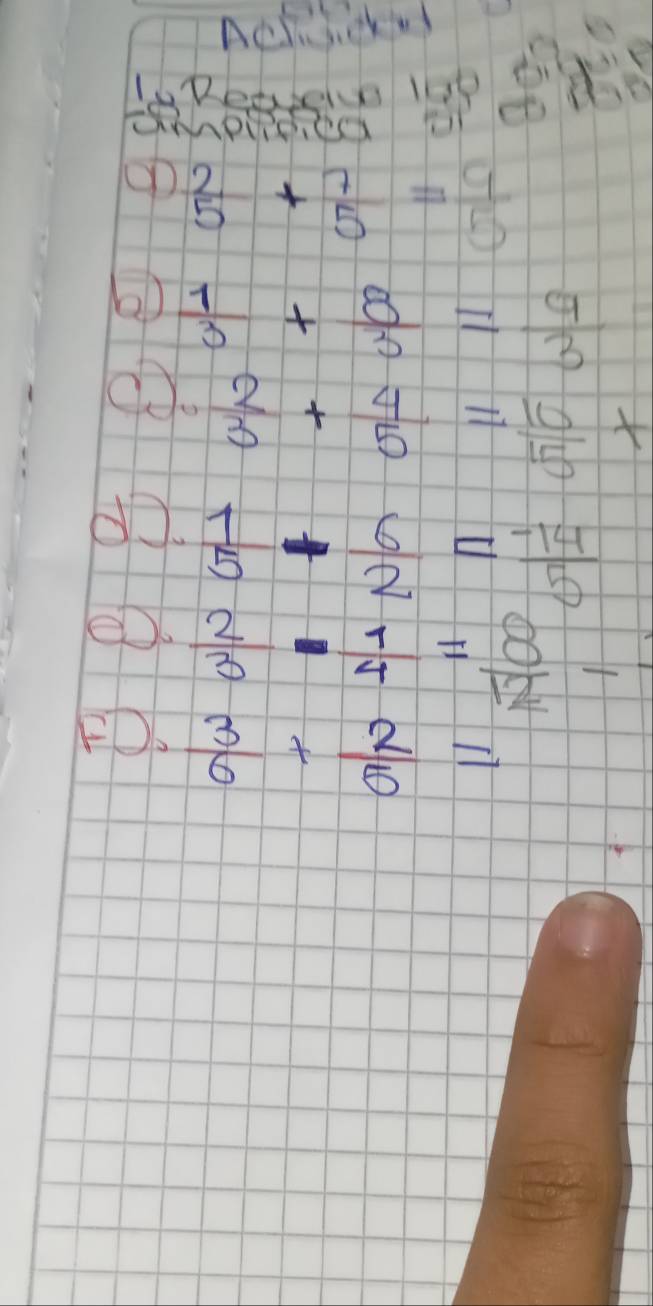 Actividad
1. Resuelve los
simplifica
a) 2/5 + 7/5 = 9/5
b) 1/3 + 8/3 = 9/3
c). 2/3 + 4/5 = 10/15 +
d). 1/5 - 6/2 = -14/5
e). 2/3 - 1/4 = 8/12 -
F). 3/6 + 2/6 =